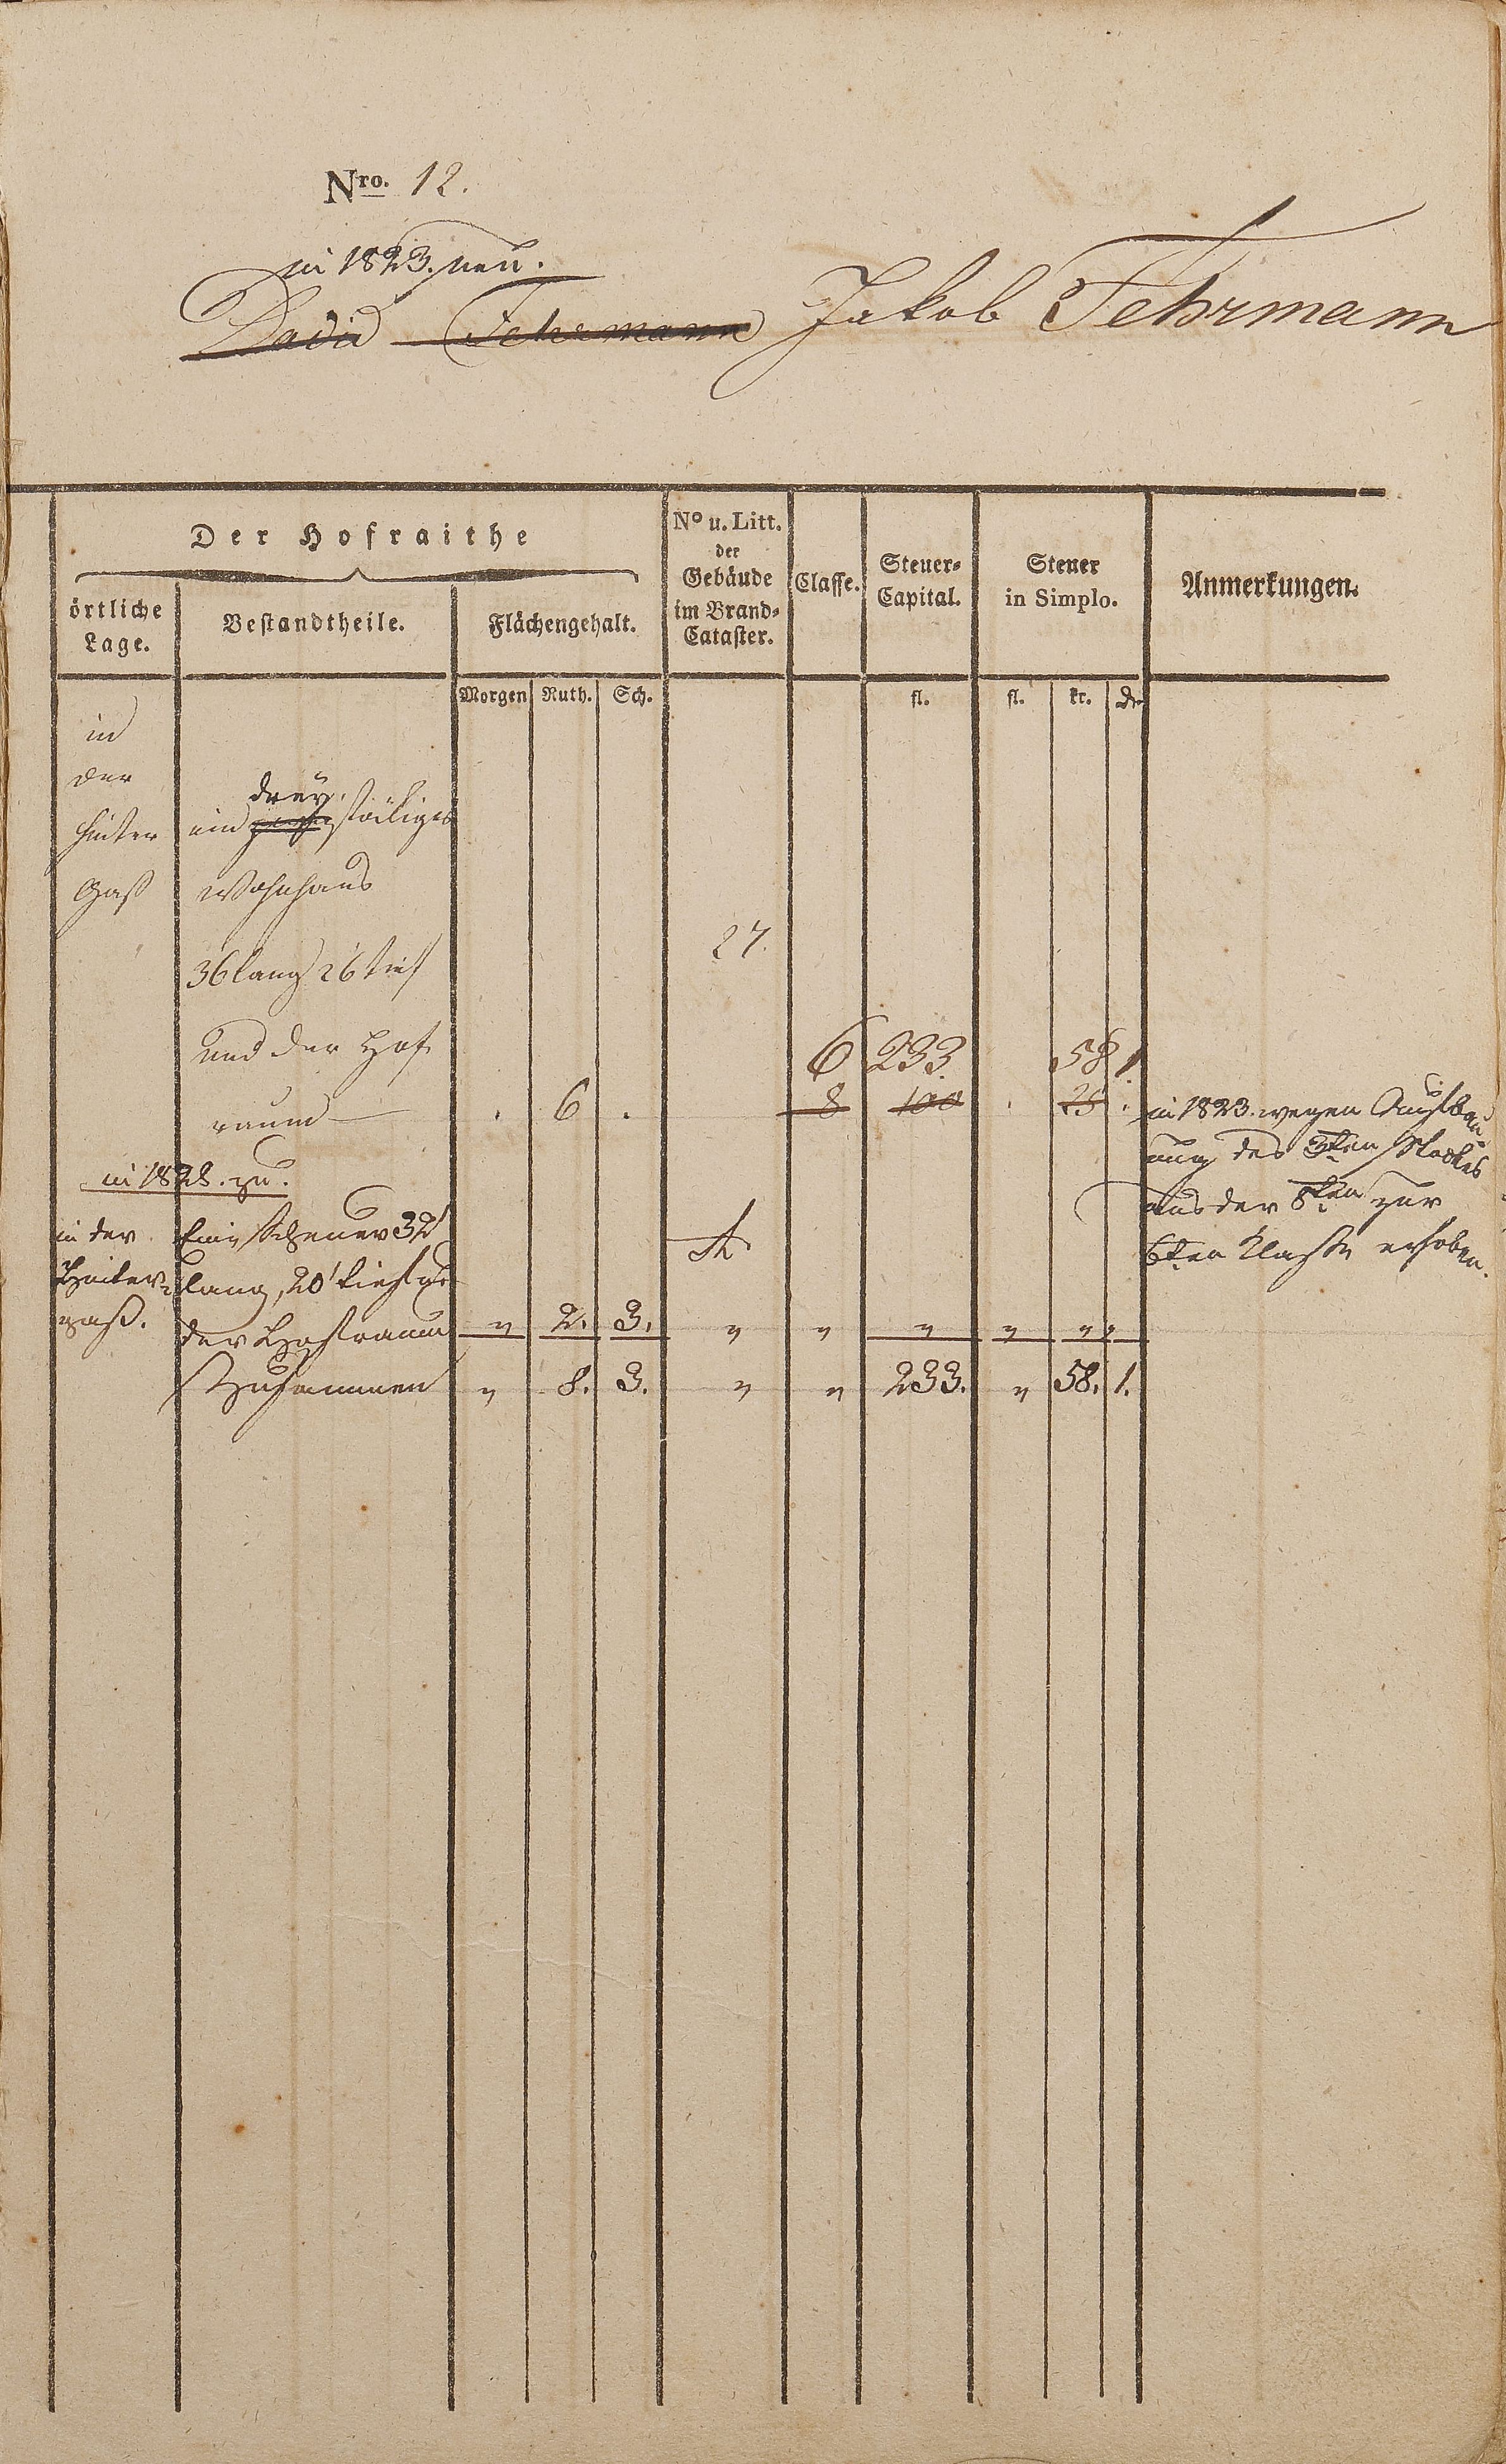 Nro. 12.
in 1823. neu.
David Fehrmann Jakob Fehrmann
Der Hofraithe
örtliche Lage.
Bestandtheile.
Flächengehalt.
No u. Litt. der Gebäude im Brand-Cataster.
Classe.
Steuer-Capital.
Steuer in Simplo.
Anmerkungen.
Morgen Ruth. Sch. fl. fl. kr. d.
in
der
drey
hinter ein stöckiges
Gaß Wohnhaus
27.
36 lang 26 tief
und der Hof
6 233. 58 1.
raum . 6 . 8 100 . 25 .
in 1823. wegen Aufbau-
ung des 3ten Stockes
aus der 8ten zur
6ten Klasse erhoben.
in 1828. zu.
in der Eine Scheuer 32'
Hinter- lang, 20' tief
gaß. der Hofraum " 2. 3. " " " " " "
Zusammen " 8. 3. " " 233. " 58. 1.